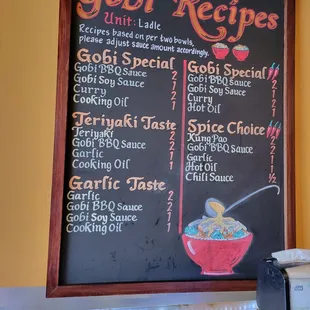 Gobi Recipes
Unit: Ladle
Recipes based on per two bowls,
please adjust sauce amount accordingly.
Gobi Special
Gobi BBQ Sauce 2
Gobi Soy Sauce 2
Curry 1
Cooking Oil 1
Teriyaki Taste
Teriyaki 2
Gobi BBQ Sauce 2
Garlic 1
Cooking Oil 1
Garlic Taste
Garlic 2
Gobi BBQ Sauce 2
Gobi Soy Sauce 1
Cooking Oil 1
Gobi Special
Gobi BBQ Sauce 2
Gobi Soy Sauce 2
Curry 1
Hot Oil 1
Spice Choice
Kung Pao 2
Gobi BBQ Sauce 2
Garlic 1
Hot Oil 1
Chili Sauce ½